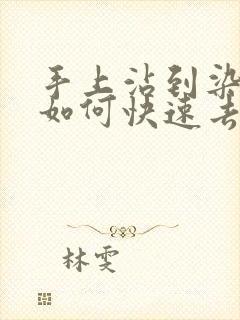 手上沾到染
如何快速去
林雯